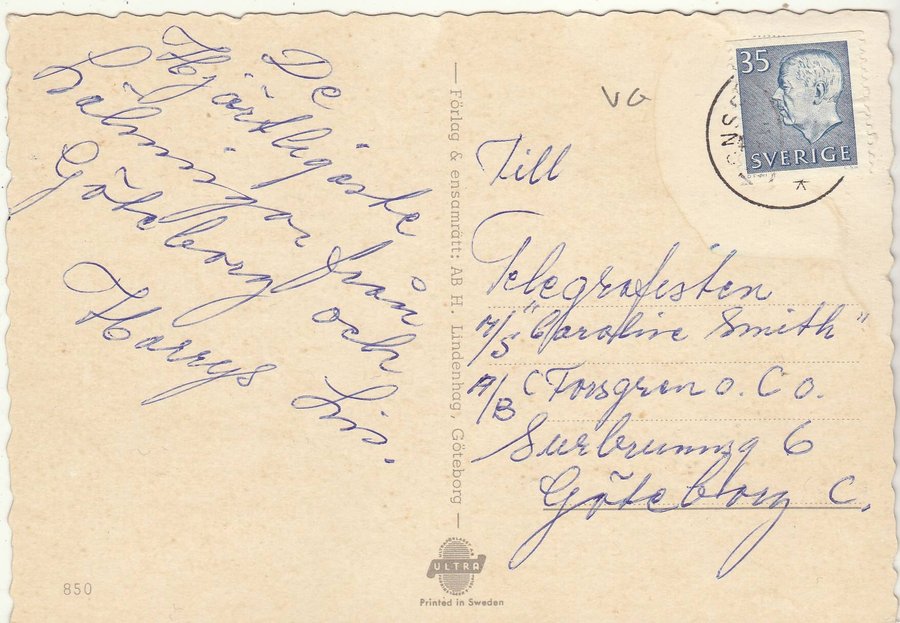 De
Hjärtligaste
Hälningar från
Göteborg och
Harrys Lis.
— Förlag & ensamrätt: AB H. Lindenhag, Göteborg —
VG
35
SVERIGE
Till
Telegrafisten
M/S "Caroline Smith"
A/B C Forsgren o. Co.
Surbrunnsg 6
Göteborg C.
850
ULTRA
Printed in Sweden